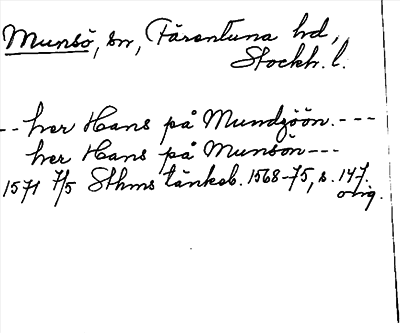 Munsö, sn, Färentuna hd,
Stockh. l.
-- her Hans på Mundzöön. ---
her Hans på Munsön ---
1571 7/5 Sthms tänkeb. 1568-75, s. 147.
orig.